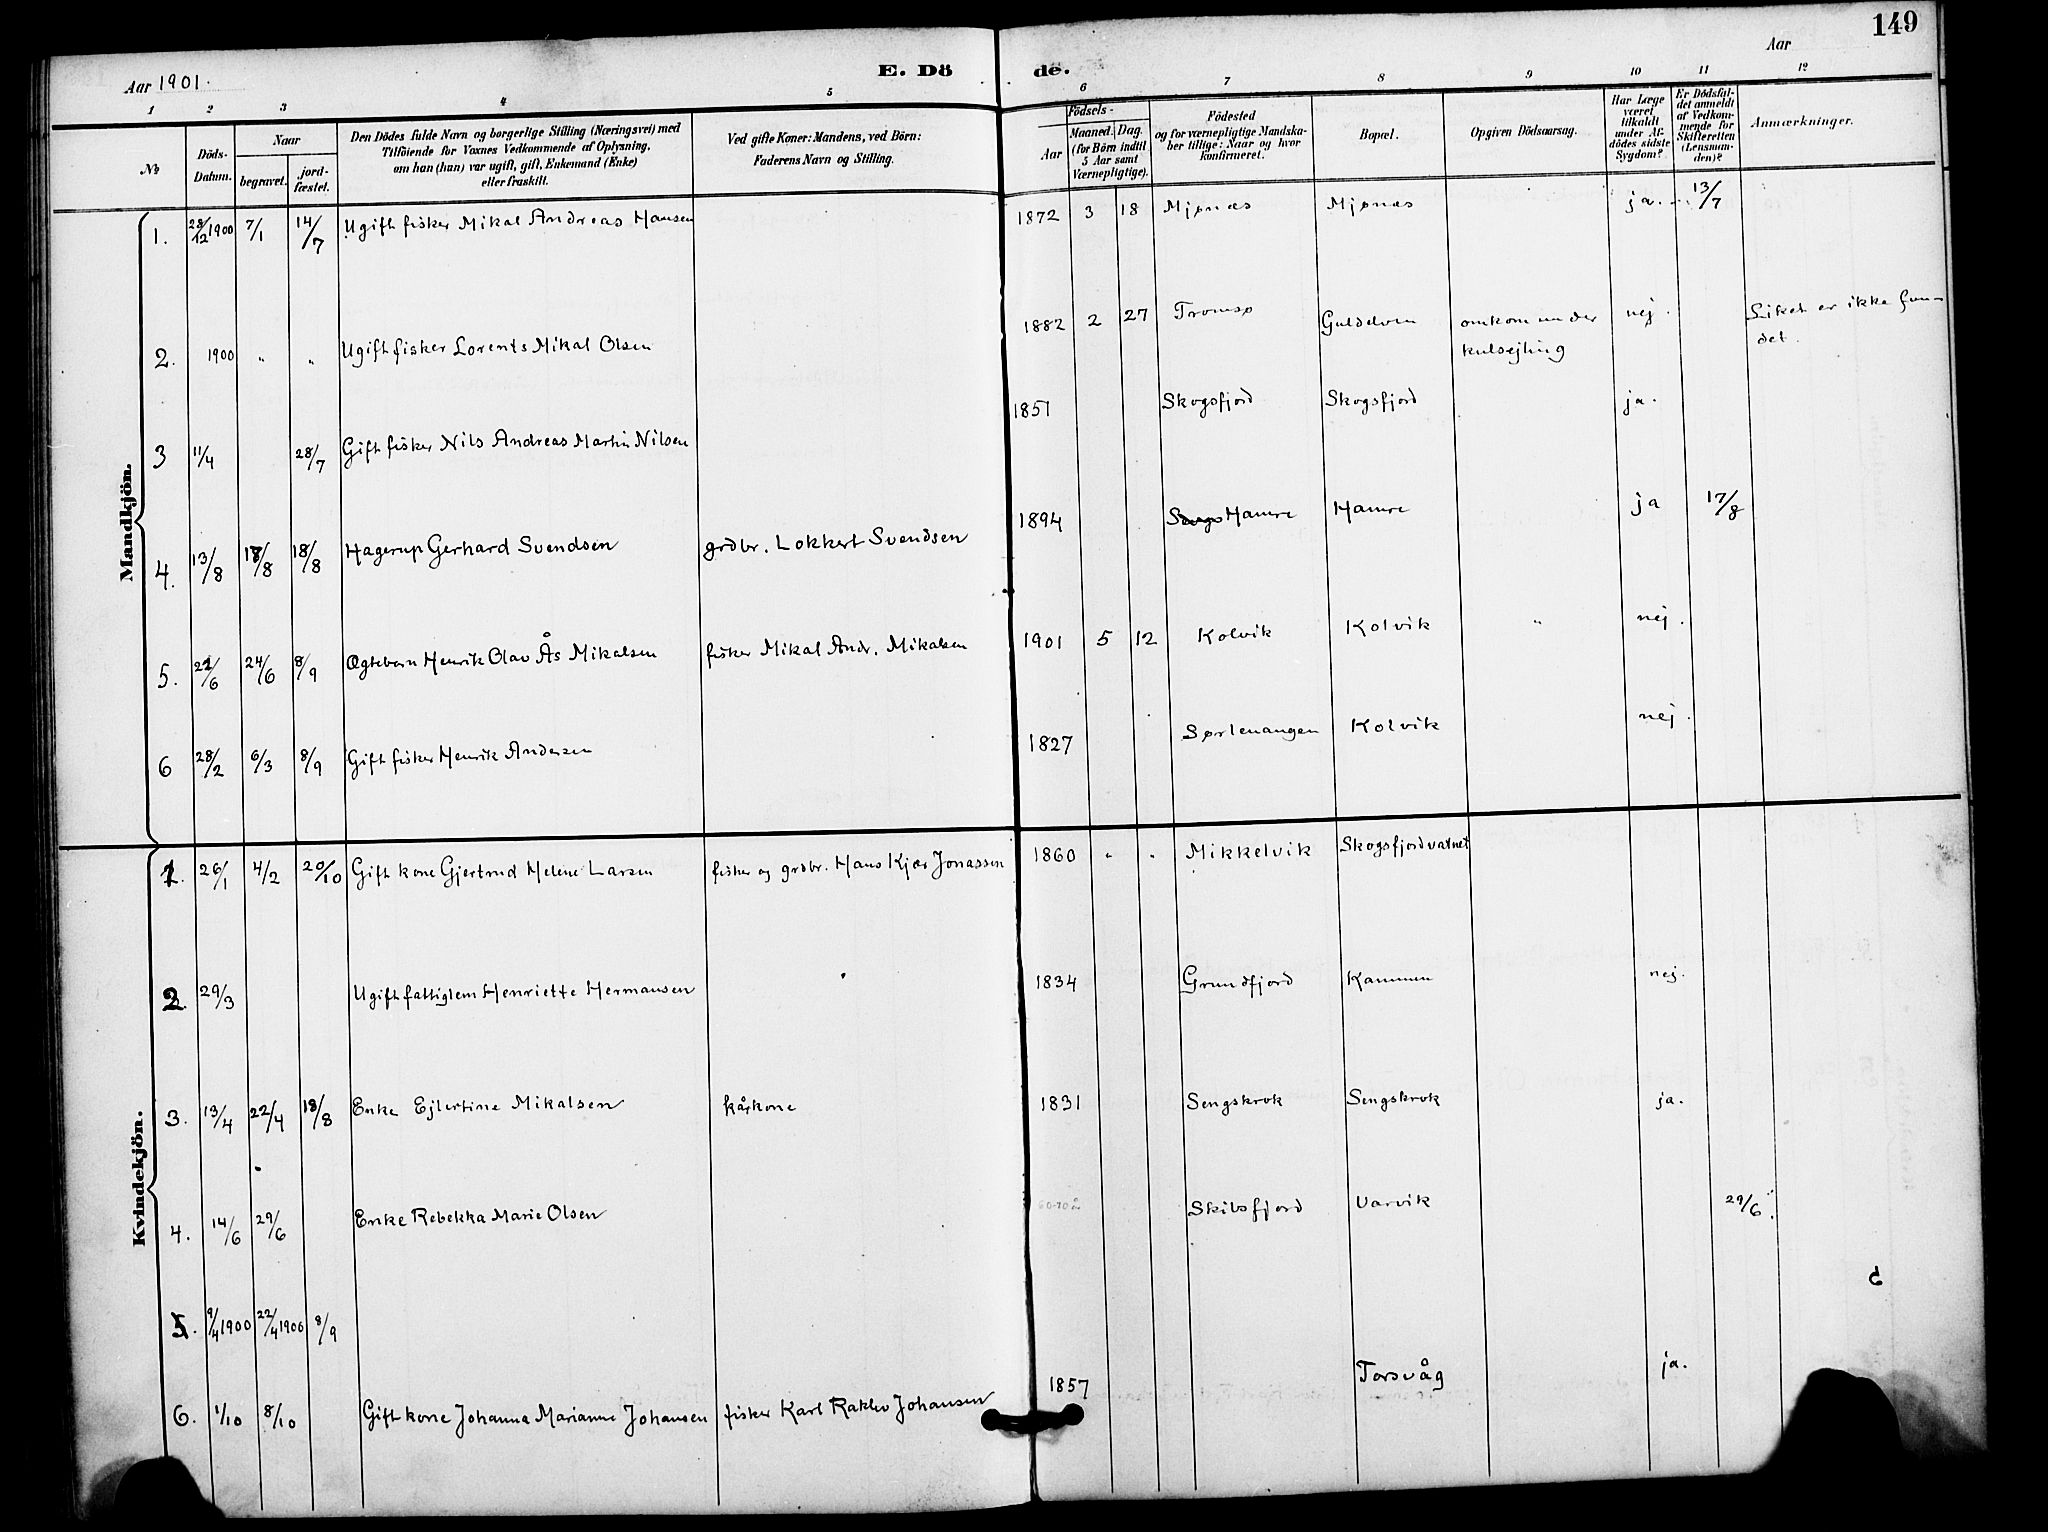 149
Aar 1901.
E. Dö de.
Aar
1 2 3 4 5 6 7 8 9 10 11 12
No
Döds-Datum.
Naar
begravet.
jord-fæstet.
Den Dödes fulde Navn og borgerlige Stilling (Næringsvei) med
Tilföiende for Voxnes Vedkommende af Oplysning,
om han (hun) var ugift, gift, Enkemand (Enke)
eller fraskilt.
Ved gifte Koner: Mandens, ved Börn:
Faderens Navn og Stilling.
Födsels-
Aar
Maaned. Dag.
(for Börn indtil
5 Aar samt
Værnepligtige).
Födested
og for værnepligtige Mandska-
ber tillige: Naar og hvor
konfirmeret.
Bopæl.
Opgiven Dödsaarsag.
Har Læge
været
tilkaldt
under Af-
dödes sidste
Sygdom?
Er Dödsfal-
det anmeldt
af Vedkom-
mende for
Skifteretten
(Lensman-
den)?
Anmærkninger.
Mandkjön.
1. 28/12 1900 7/1 14/7 Ugift fisker Mikal Andreas Hansen 1872 3 18 Mjønæs Mjønæs ja. 13/7
2. 1900 " " Ugift fisker Lorents Mikal Olsen 1882 2 27 Tromsø omkom under nej. Liket er ikke fun-
kulsejling det.
3 11/4 28/7 Gift fisker Nils Andreas Martin Nilsen 1851 Skogsfjord Skogsfjord ja.
4. 13/8 18/8 18/8 Hagerup Gerhard Svendsen grdbr. Lokkert Svendsen 1894 Hamre Hamre ja 17/8
5. 22/6 24/6 8/9 Ægtebarn Henrik Olav Ås Mikalsen fisker Mikal Andr. Mikalsen 1901 5 12 Kolvik Kolvik " nej.
6 28/2 6/3 8/9 Gift fisker Henrik Andersen 1827 Sørlenangen Kolvik nej.
Kvindekjön.
1. 26/1 4/2 20/10 Gift kone Gjertrud Helene Larsen fisker og grdbr. Hans Kjær Jonassen 1860 " " Mikkelvik Skogsfjordvatnet
2. 29/3 Ugift fattiglem Henriette Hermansen 1834 Grundfjord Kammen nej.
3. 13/4 22/4 18/8 Enke Ejlertine Mikalsen kårkone 1831 Sengskrok Sengskrok ja.
4. 14/6 29/6 Enke Rebekka Marie Olsen 60-70 år Skibsfjord Varvik 29/6.
5. 9/4 1900 22/4 1900 8/9
6. 1/10 8/10 Gift kone Johanna Marianne Johansen fisker Karl Raklev Johansen 1857 Torsvåg ja.